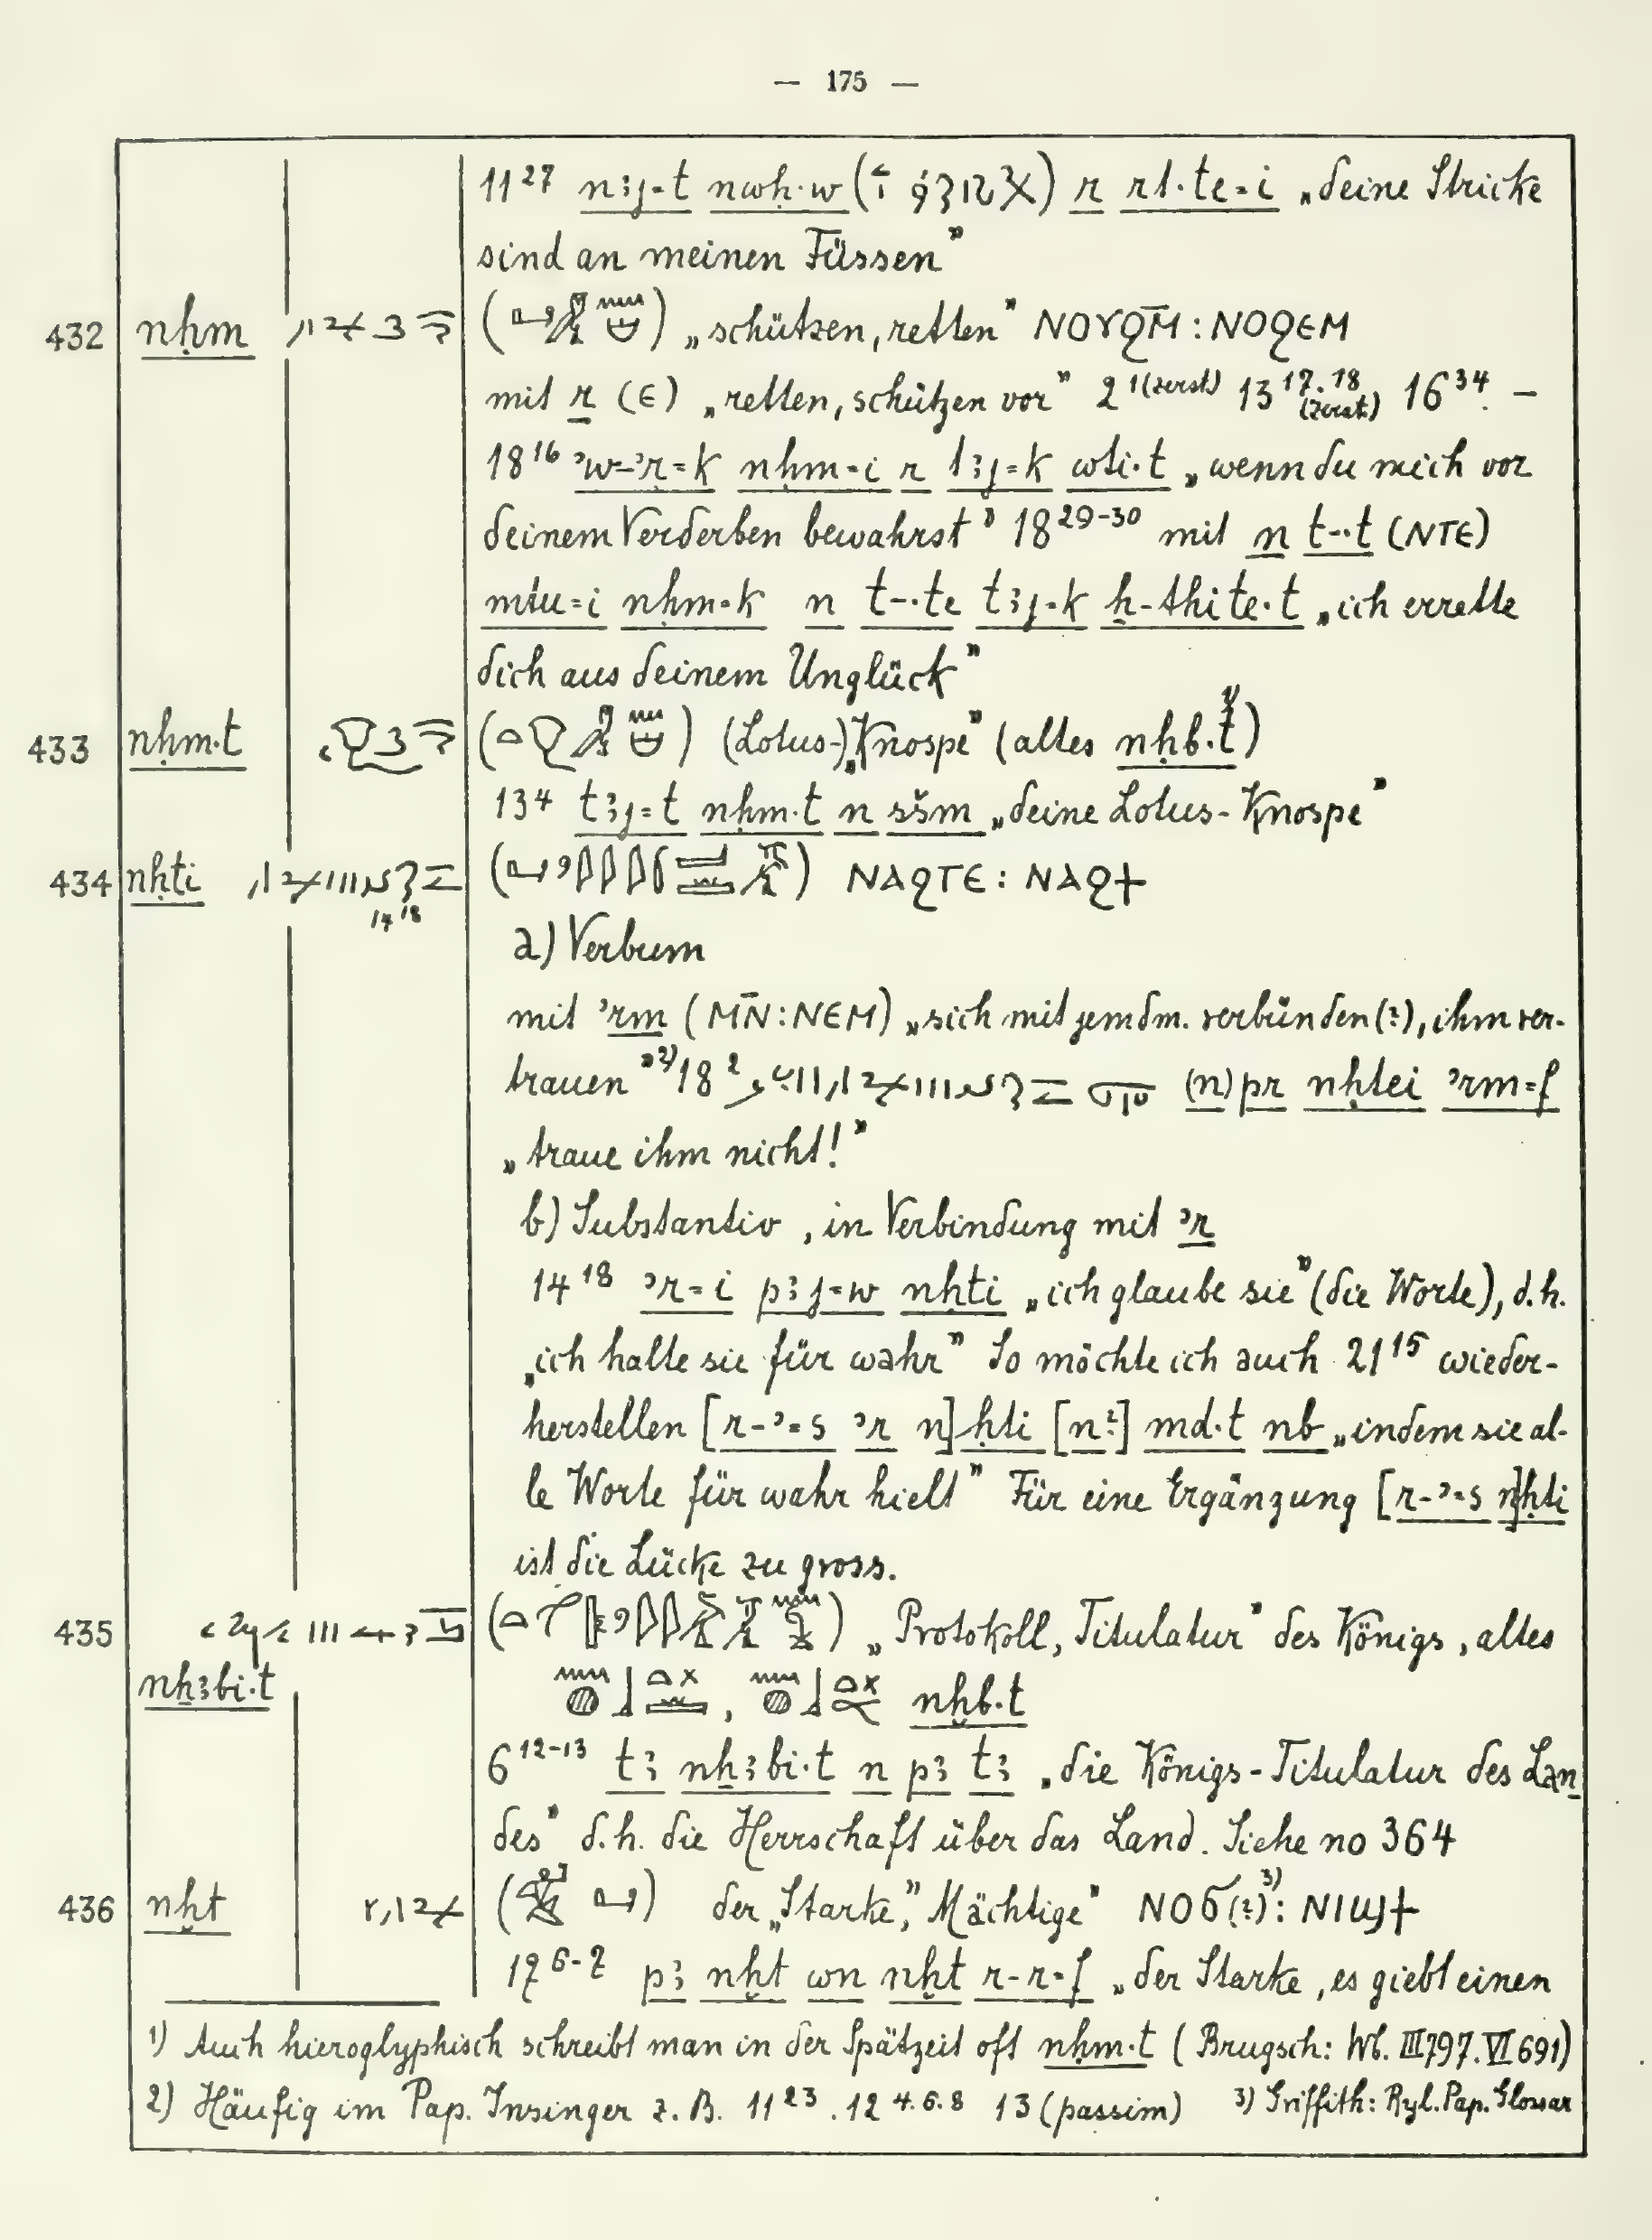 — 175 —
11 27 nꜣj=t nwḥ·w ( ) r rt·te=i „deine Stricke
sind an meinen Füssen”
432 nḥm ( ) „schützen, retten” ⲚⲞⲨϨⲘ̄ : ⲚⲞϨⲈⲘ
mit r (ⲉ) „retten, schützen vor” 2 1 (zerst.) 13 17.18 (zerst.) 16 34. –
18 16 ʾw-ʾr=k nḥm=i r tꜣj=k wti·t „wenn du mich vor
deinem Verderben bewahrst” 18 29-30 mit n t-·t (ⲚⲦⲈ)
mtu=i nḥm=k n t-·te tꜣj=k ẖ-thite·t „ich errette
dich aus deinem Unglück”
433 nḥm·t ( ) (Lotus-)„Knospe” (altes nḥb·t 1))
13 4 tꜣj=t nḥm·t n sšm „deine Lotus-Knospe”
434 nḥti 14 18 ( ) ⲚⲀϨⲦⲈ : ⲚⲀϨϮ
a) Verbum
mit ʾrm (ⲘⲚ̄ : ⲚⲈⲘ) „sich mit jemdm. verbünden (?), ihm ver-
trauen” 2) 18 2 (n) pr nḥtei ʾrm=f
„traue ihm nicht!”
b) Substantiv, in Verbindung mit ʾr
14 18 ʾr=i pꜣj=w nḥti „ich glaube sie” (die Worte), d.h.
„ich halte sie für wahr” So möchte ich auch 21 15 wieder-
herstellen [r-ʾ=s ʾr n]ḥti [n?] md·t nb „indem sie al-
le Worte für wahr hielt” Für eine Ergänzung [r-ʾ=s n]ḥti
ist die Lücke zu gross.
435 ( ) „Protokoll, Titulatur” des Königs, altes
nẖꜣbi·t , nḫb·t
6 12-13 tꜣ nẖꜣbi·t n pꜣ tꜣ „die Königs-Titulatur des Lan
des” d.h. die Herrschaft über das Land. Siehe no 364
436 nḫt ( ) der „Starke,” „Mächtige” ⲚⲞϬ (?) 3) : ⲚⲒϢϮ
pꜣ nḫt wn nḫt r-r=f „der Starke, es giebt einen
1) Auch hieroglyphisch schreibt man in der Spätzeit oft nḥm·t (Brugsch: Wb. III 797. VI 691)
2) Häufig im Pap. Insinger z. B. 11 23 . 12 4.6.8 13 (passim) 3) Griffith: Ryl. Pap. Glossar